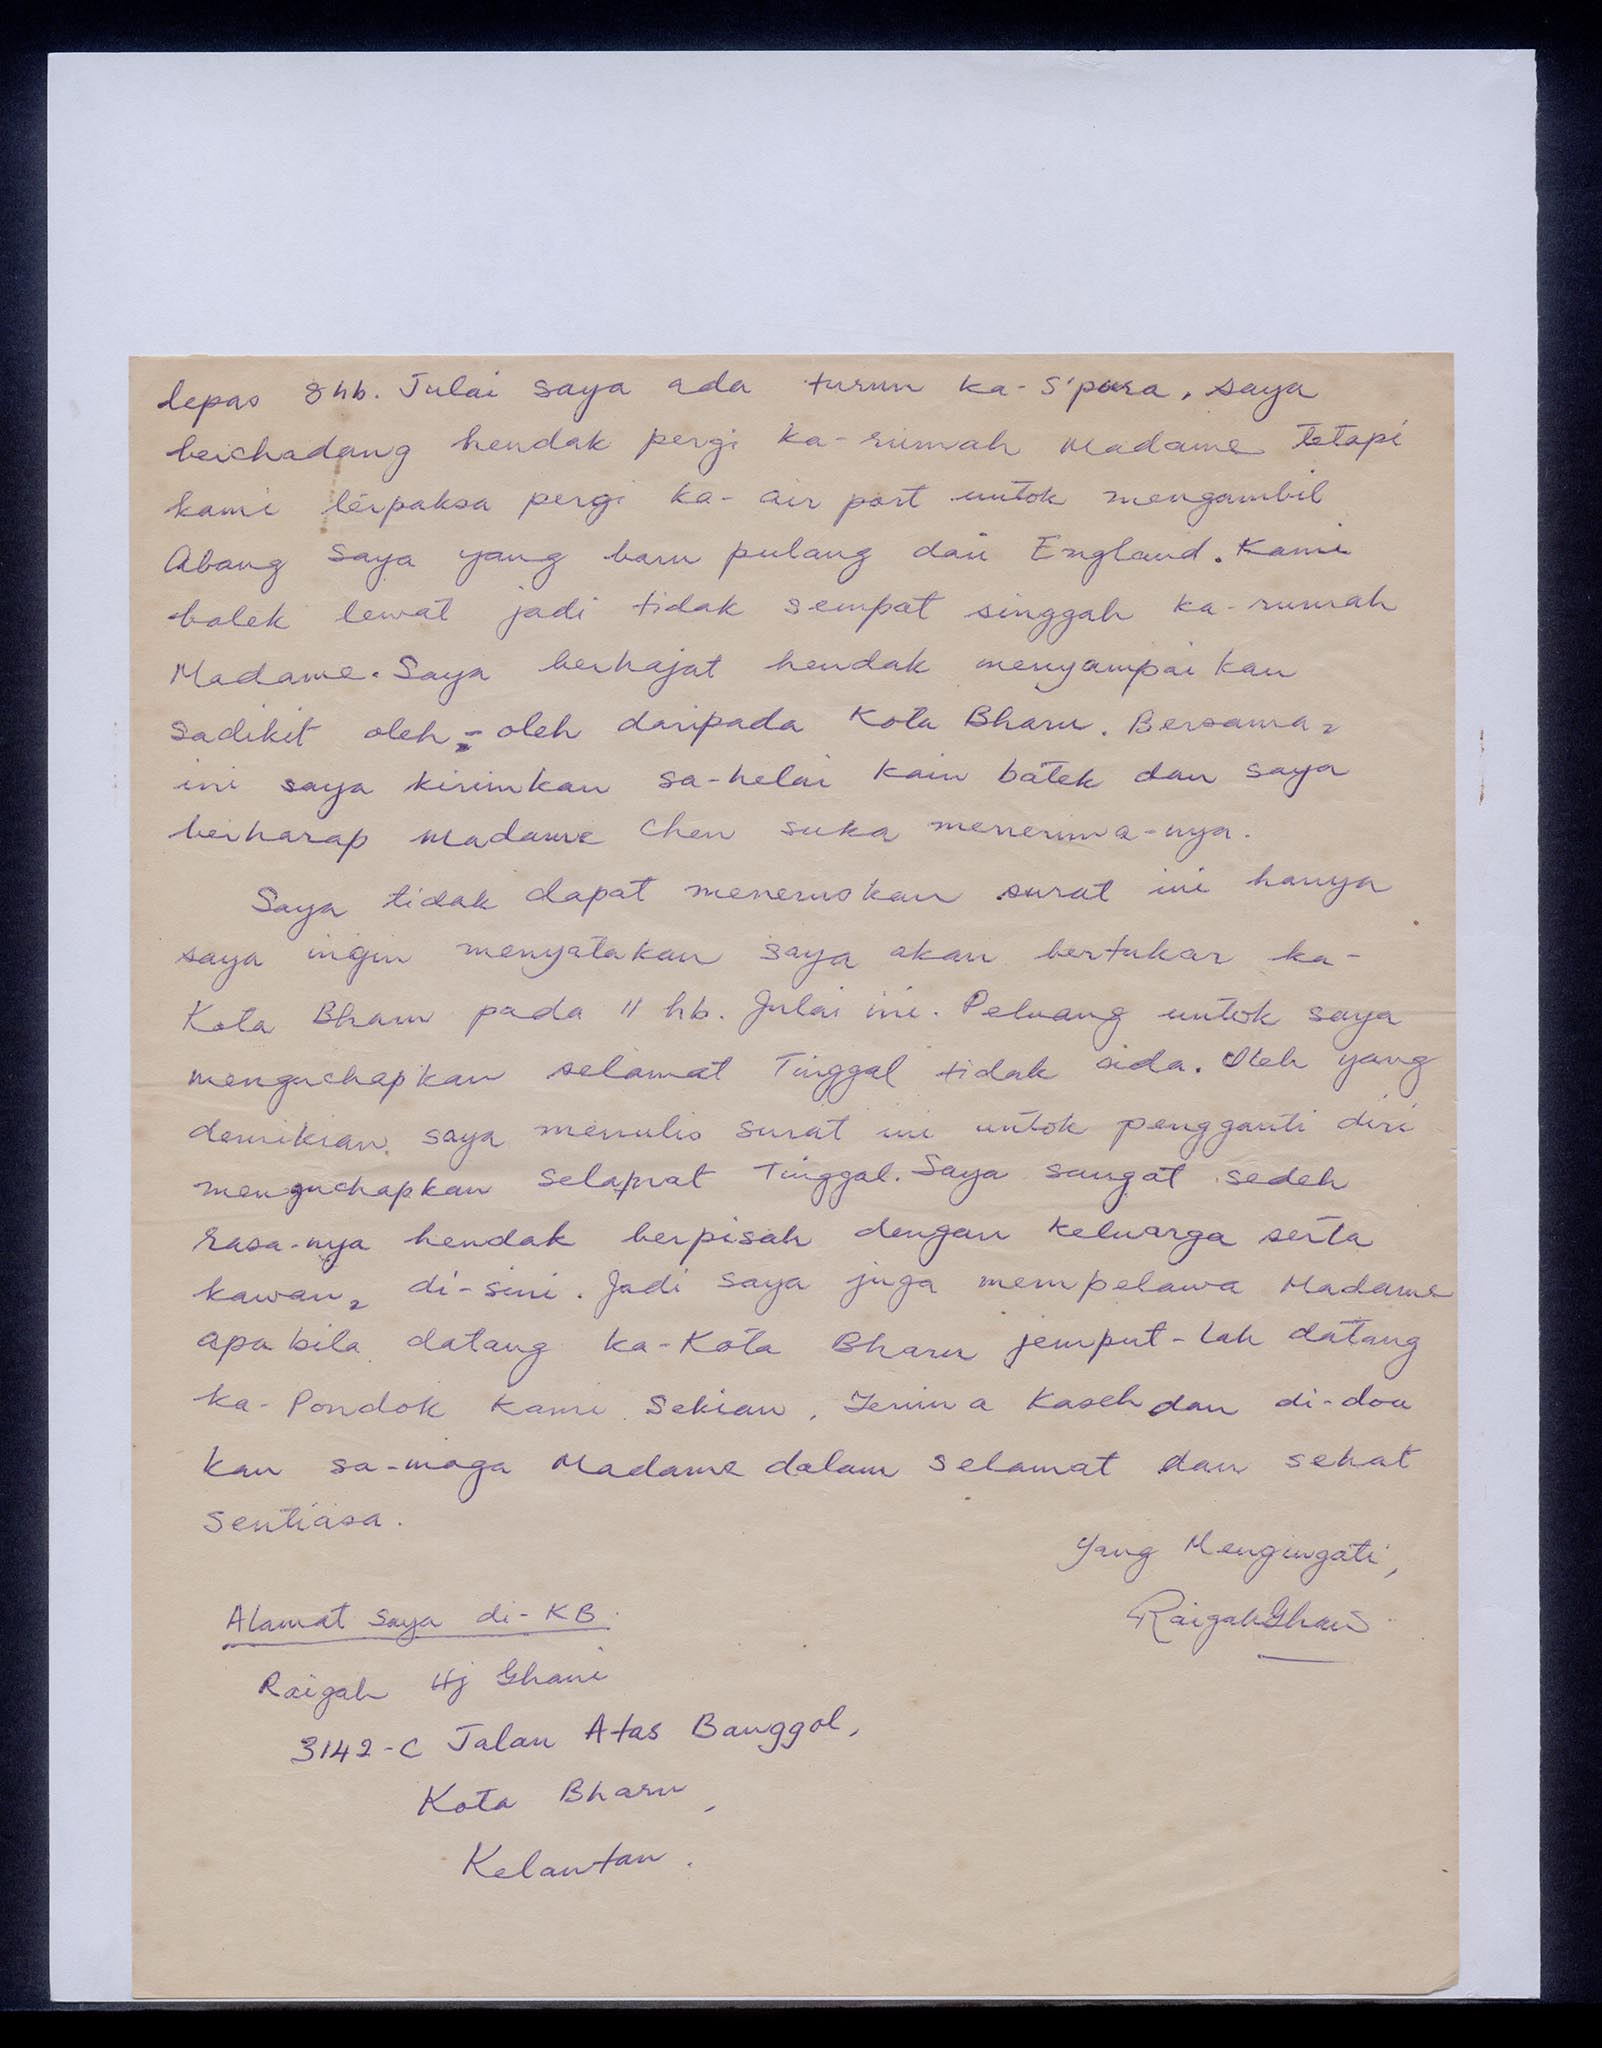 lepas 8hb. Julai saya ada turun ka-S'pura, saya
berchadang hendak pergi ka-rumah Madame tetapi
kami terpaksa pergi ka-air port untok mengambil
Abang saya yang baru pulang dari England. Kami
balek lewat jadi tidak sempat singgah ka-rumah
Madame. Saya berhajat hendak menyampaikan
sadikit oleh2-oleh daripada Kota Bharu. Bersama2
ini saya kirimkan sa-helai kain batek dan saya
berharap Madame Chen suka menerima-nya.
Saya tidak dapat meneruskan surat ini hanya
saya ingin menyatakan saya akan bertukar ka-
Kota Bharu pada 11 hb. Julai ini. Peluang untok saya
menguchapkan selamat Tinggal tidak ada. Oleh yang
demikian saya menulis surat ini untok pengganti diri
menguchapkan Selamat Tinggal. Saya sangat sedeh
rasa-nya hendak berpisah dengan keluarga serta
kawan2 di-sini. Jadi saya juga mempelawa Madame
apabila datang ka-Kota Bharu jemput-lah datang
ka-Pondok kami. Sekian, Terima Kaseh dan di-doa
kan sa-moga Madame dalam selamat dan sehat
sentiasa.
Yang Mengingati,
RaigahGhani
Alamat saya di-KB.
Raigah Hj Ghani
3142-C Jalan Atas Banggol,
Kota Bharu,
Kelantan.